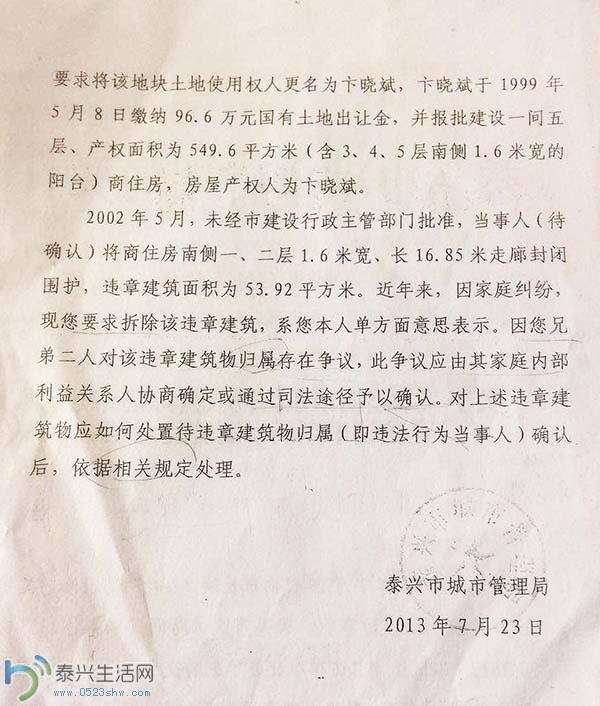 要求将该地块土地使用权人更名为卞晓斌，卞晓斌于 1999 年
5 月 8 日缴纳 96.6 万元国有土地出让金，并报批建设一间五
层、产权面积为 549.6 平方米（含 3、4、5 层南侧 1.6 米宽的
阳台）商住房，房屋产权人为卞晓斌。
2002 年 5 月，未经市建设行政主管部门批准，当事人（待
确认）将商住房南侧一、二层 1.6 米宽、长 16.85 米走廊封闭
围护，违章建筑面积为 53.92 平方米。近年来，因家庭纠纷，
现您要求拆除该违章建筑，系您本人单方面意思表示。因您兄
弟二人对该违章建筑物归属存在争议，此争议应由其家庭内部
利益关系人协商确定或通过司法途径予以确认。对上述违章建
筑物应如何处置待违章建筑物归属（即违法行为当事人）确认
后，依据相关规定处理。
泰兴市城市管理局
2013 年 7 月 23 日
泰兴生活网
www.0523shw.com